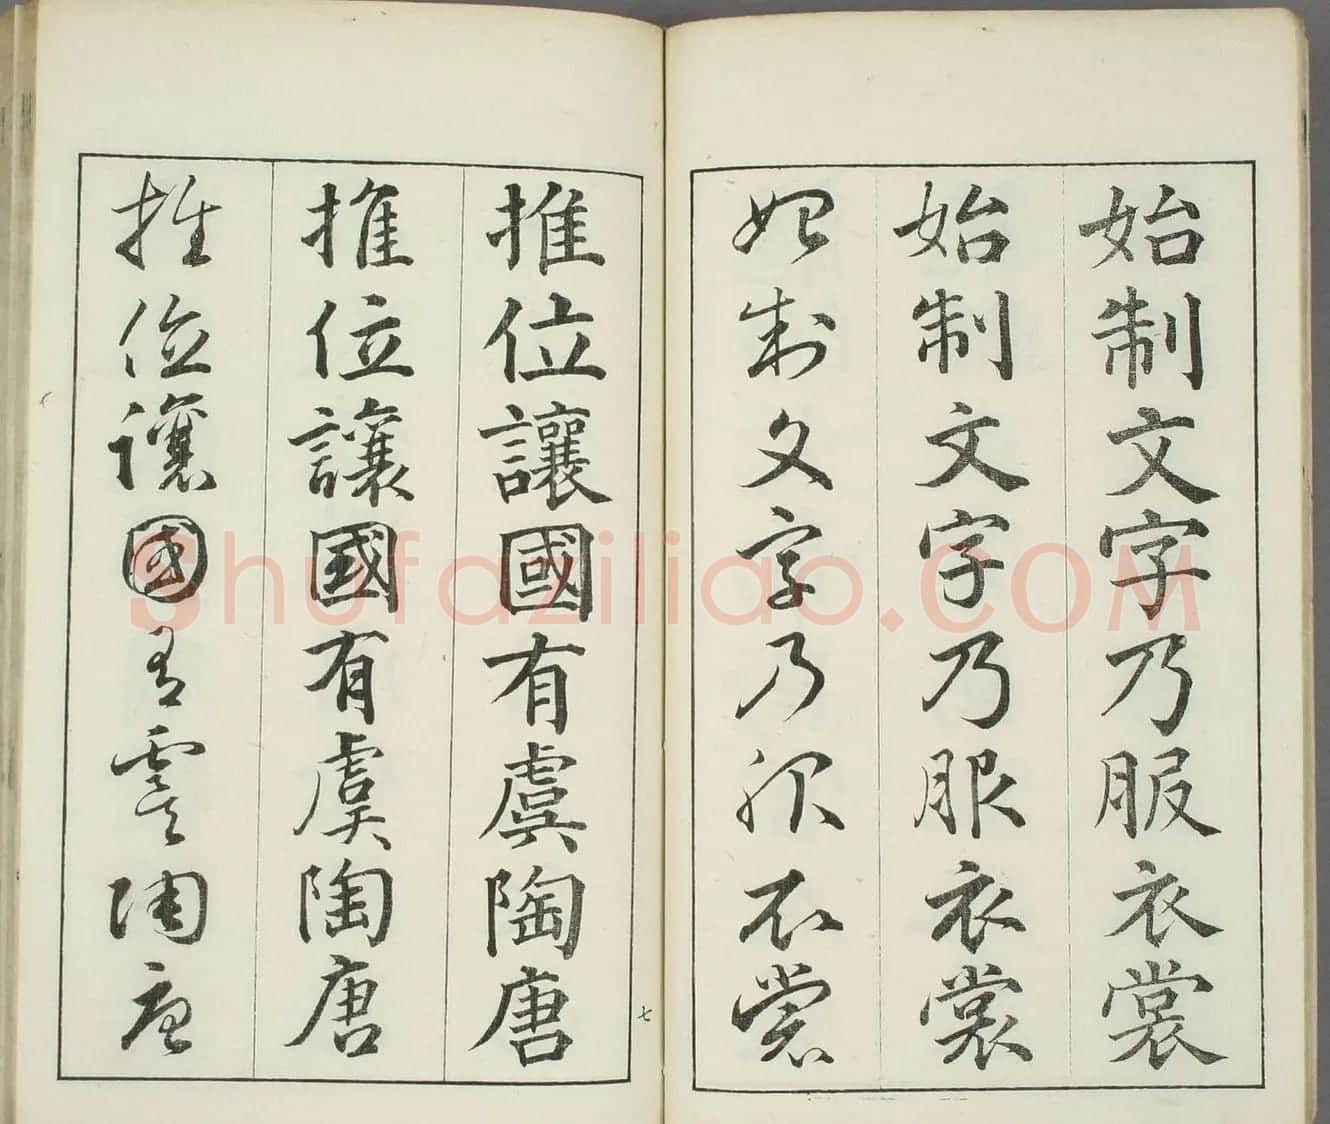 始制文字乃服衣裳
始制文字乃服衣裳
始制文字乃服衣裳
七
推位讓國有虞陶唐
推位讓國有虞陶唐
推位讓國有虞陶唐
Shufaziliao.COM